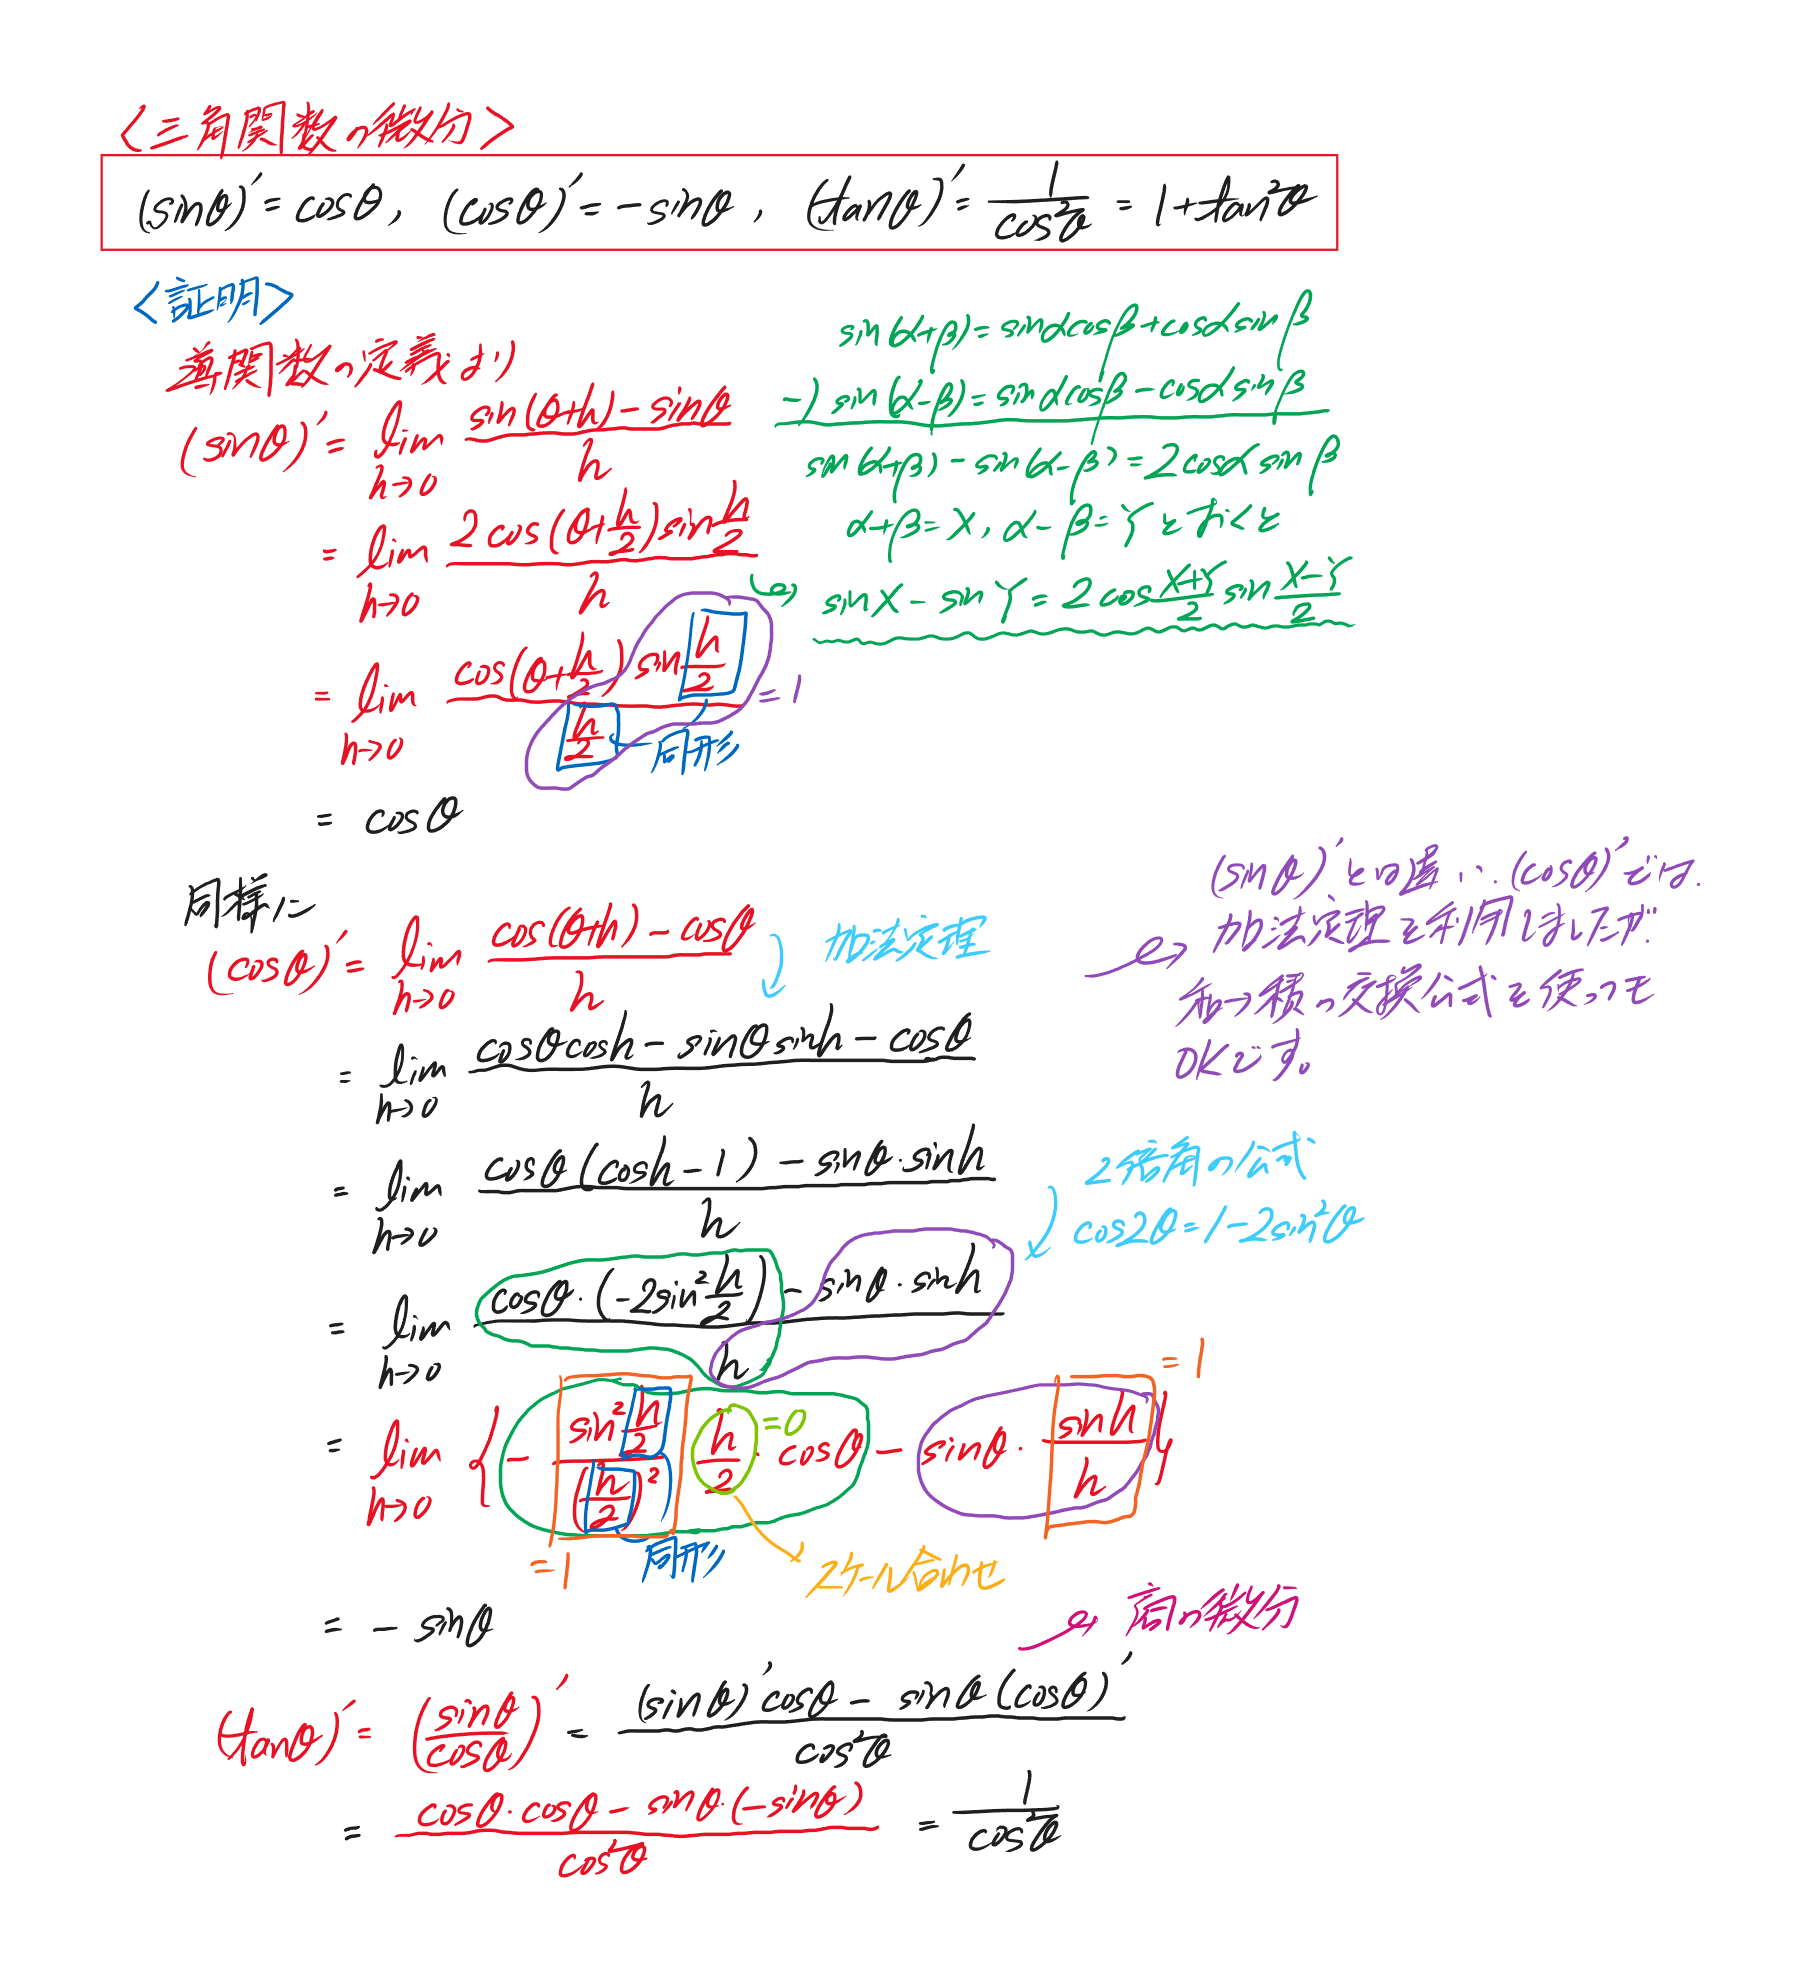 <三角関数の微分>
(sinθ)' = cosθ, (cosθ)' = -sinθ, (tanθ)' = 1/cos²θ = 1+tan²θ
<証明>
導関数の定義より
(sinθ)' = lim[h→0] (sin(θ+h) - sinθ)/h
= lim[h→0] (2cos(θ+h/2)sin h/2)/h
= lim[h→0] (cos(θ+h/2) sin h/2)/(h/2) = 1
同形
= cosθ
sin(α+β) = sinαcosβ + cosαsinβ
-) sin(α-β) = sinαcosβ - cosαsinβ
sin(α+β) - sin(α-β) = 2cosαsinβ
α+β=X, α-β=Yとおくと
sinX - sinY = 2cos (X+Y)/2 sin (X-Y)/2
同様に
(cosθ)' = lim[h→0] (cos(θ+h) - cosθ)/h
加法定理
= lim[h→0] (cosθcosh - sinθsinh - cosθ)/h
= lim[h→0] (cosθ(cosh-1) - sinθ・sinh)/h
2倍角の公式
cos2θ = 1-2sin²θ
= lim[h→0] (cosθ・(-2sin² h/2) - sinθ・sinh)/h
= lim[h→0] { - (sin² h/2)/(h/2)² h/2・cosθ - sinθ・sinh/h }
=0
=1
=1
同形
スケール合わせ
= -sinθ
(sinθ)'とは違い、(cosθ)'では、
加法定理を利用しましたが、
和→積の交換公式を使っても
OKです。
商の微分
(tanθ)' = (sinθ/cosθ)' = ((sinθ)'cosθ - sinθ(cosθ)')/cos²θ
= (cosθ・cosθ - sinθ・(-sinθ))/cos²θ = 1/cos²θ